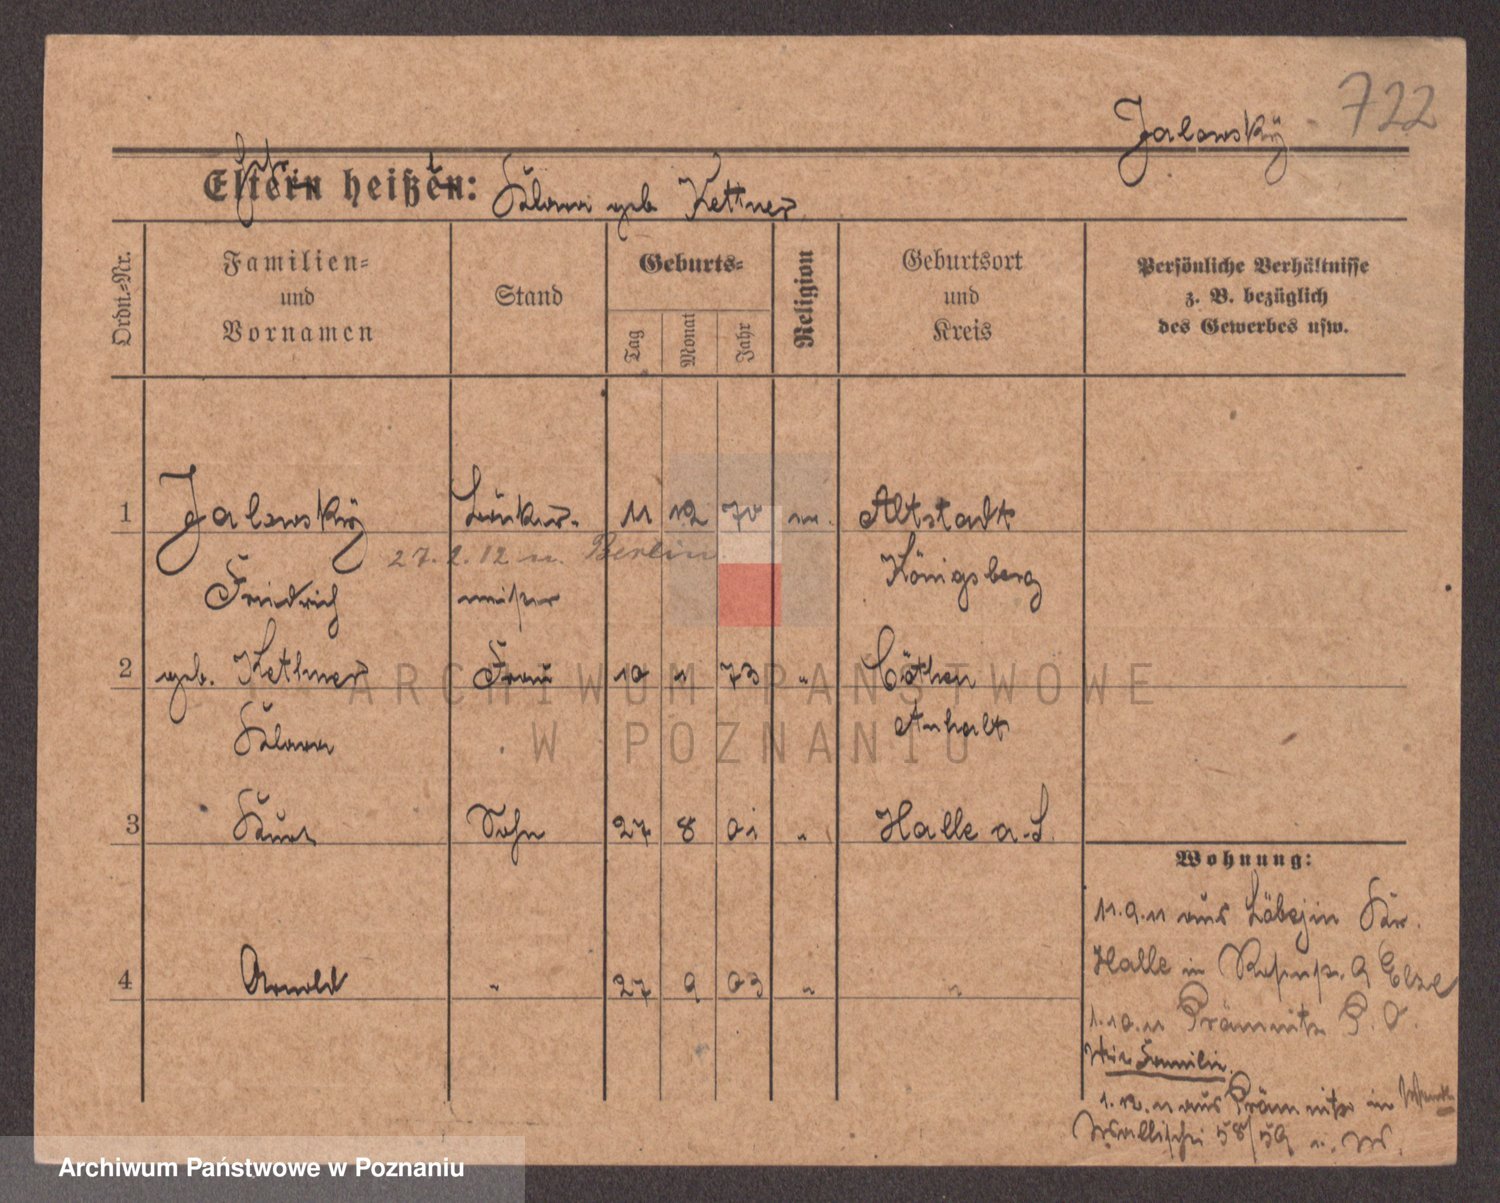 Jalowsky 722
Eltern heißen: Klara geb Kettner
Ordn.-Nr.
Familien-
und
Vornamen
Stand
Geburts-
Tag
Monat
Jahr
Religion
Geburtsort
und
Kreis
Persönliche Verhältnisse
z. B. bezüglich
des Gewerbes usw.
1 Jalowsky 11 12 70 Altstadt
27.2.12 n. Berlin
Friedrich Königsberg
2 geb. Kettner Frau 10 1 73 " Cöthen
Klara Anhalt
3 Kurt Sohn 27 8 01 " Halle a.S.
4 Arnold " 27 9 03 " "
Wohnung:
11.9.11 aus Löbejün
Halle in
1.10.11
Familie
1.12.11 aus in
Wallischei 58/59
ARCHIWUM PAŃSTWOWE
W POZNANIU
Archiwum Państwowe w Poznaniu